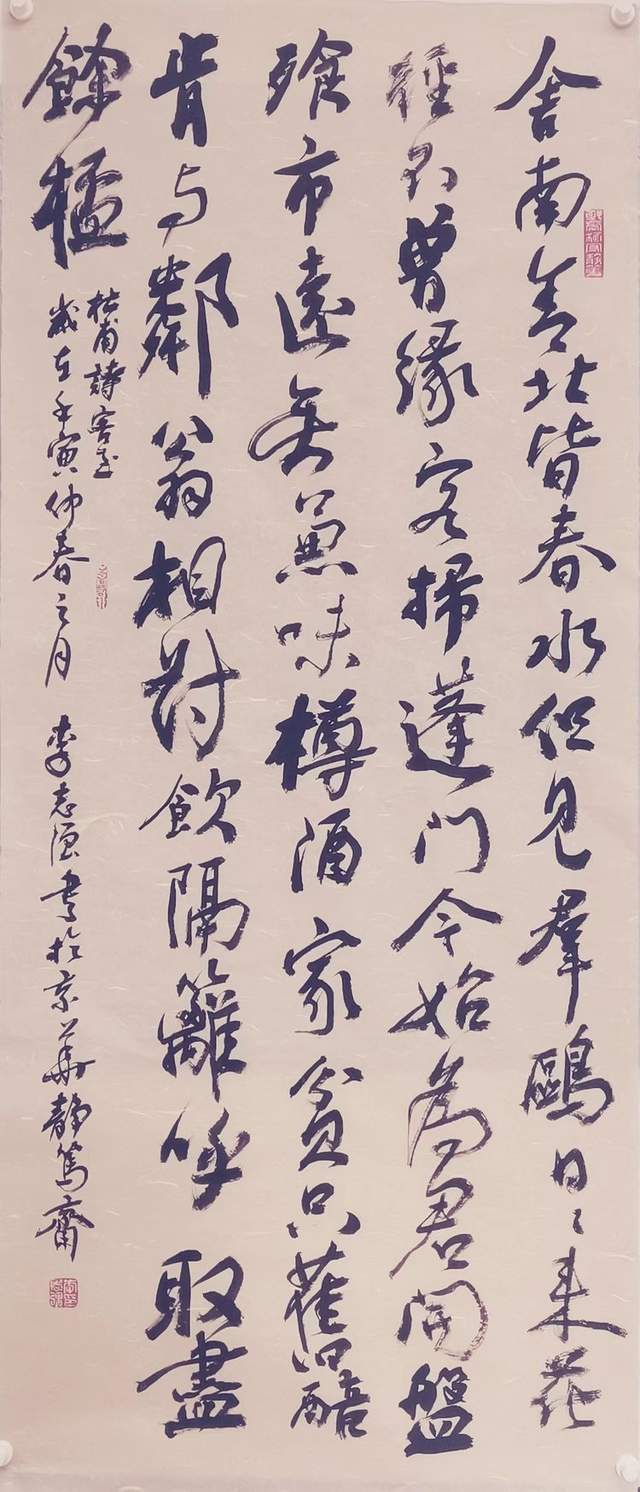 舍南舍北皆春水但見群鷗日々來花
徑不曾緣客掃蓬門今始為君開盤
飧市遠無兼味樽酒家貧只舊醅
肯與鄰翁相對飲隔籬呼取盡
餘杯
杜甫詩客至
歲在壬寅仲春之月 李志強書於京華靜篤齋